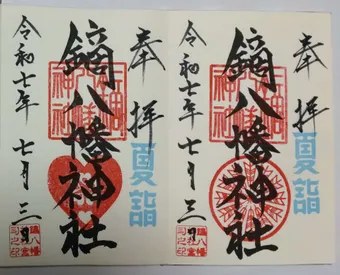 奉拝
夏詣
鏑八幡神社
令和七年 七月三日
奉拝
夏詣
鏑八幡神社
令和七年 七月三日